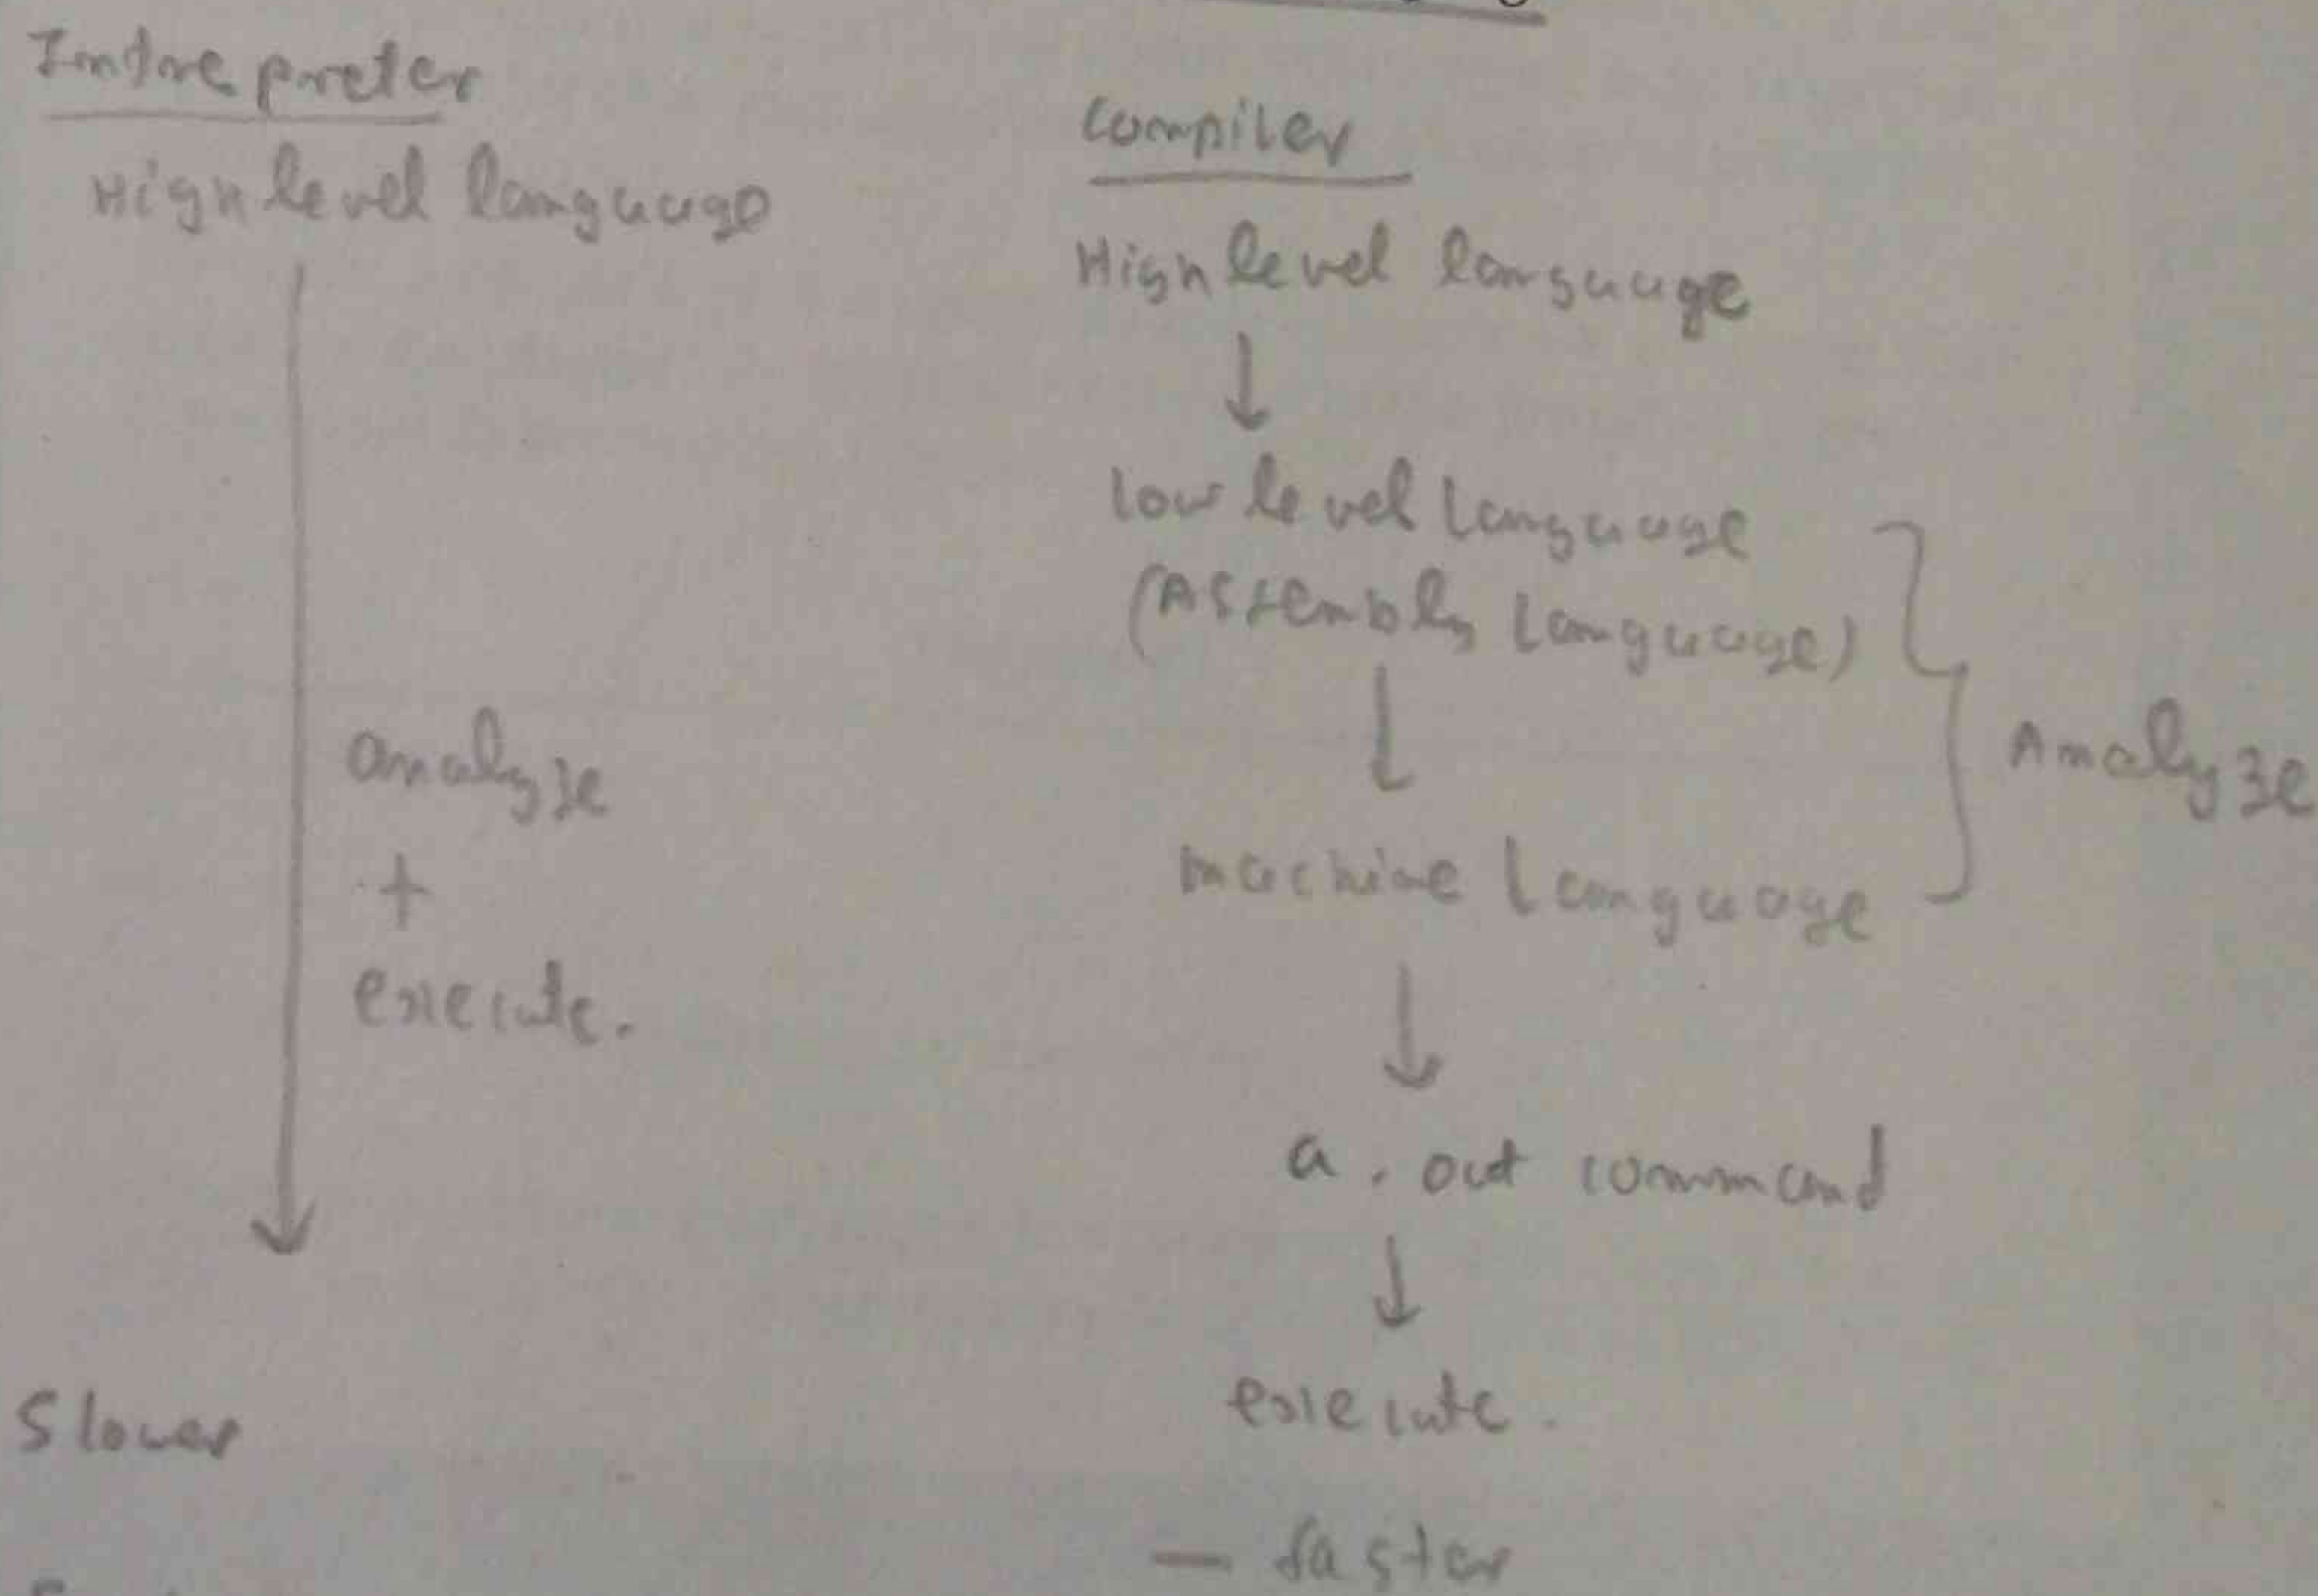 Intrepreter
High level language
analyze
+
execute.
Slower
Compiler
High level language
↓
low level language
(Assembly language)
↓
machine language
Analyze
↓
a.out command
↓
execute.
— faster